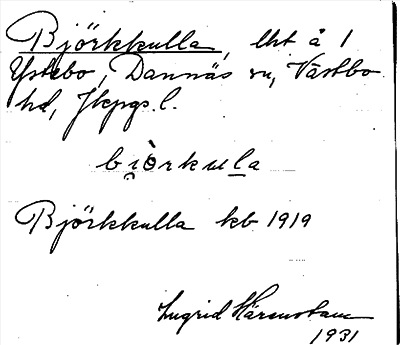 Björkkulla, lht å 1
Ystebo, Dannäs sn, Västbo
hd, Jkpgs. l.
bi̯ò̱rkul̲a
Björkkulla kb 1919
Ingrid Härenstam
1931